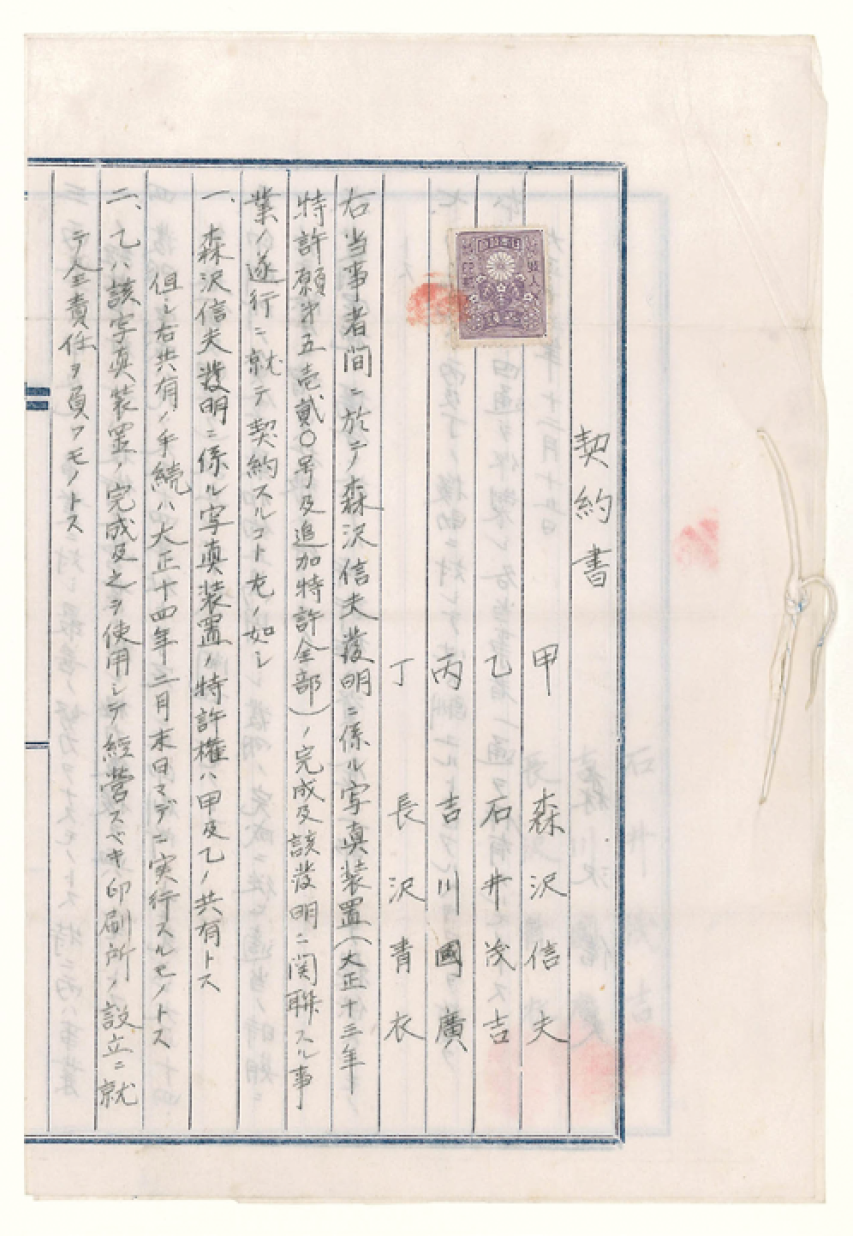 契約書
甲 森沢信夫
乙 石井茂吉
丙 吉川國廣
丁 長沢青衣
右当事者間ニ於テ森沢信夫發明ニ係ル写真装置(大正十三年
特許願才五壱貳〇号及追加特許全部)ノ完成及該發明ニ関聯スル事
業ノ遂行ニ就テ契約スルコト左ノ如シ
一、森沢信夫發明ニ係ル写真装置ノ特許権ハ甲及乙ノ共有トス
但シ右共有ノ手続ハ大正十四年二月末日マデニ実行スルモノトス
二、乙ハ該写真装置ノ完成及之ヲ使用シテ経営スベキ印刷所ノ設立ニ就
テ全責任ヲ負フモノトス